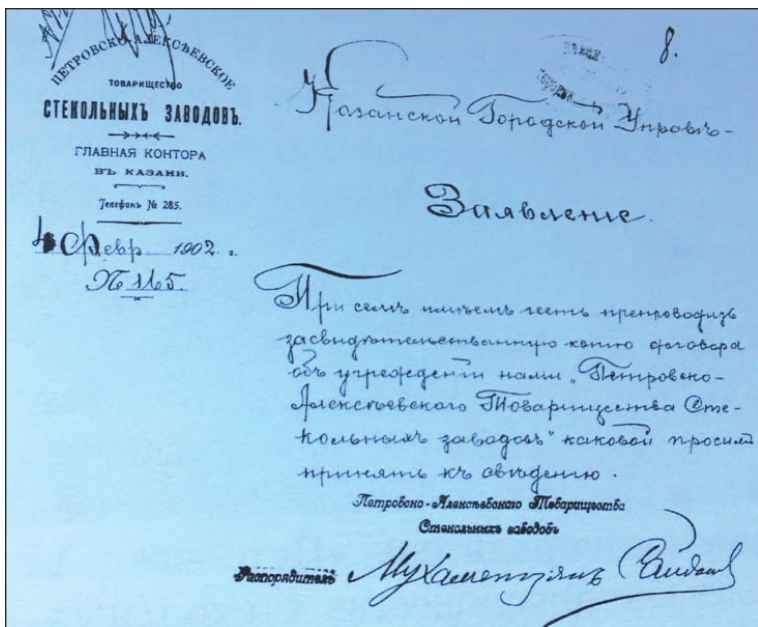 ПЕТРОВСКО-АЛЕКСѢЕВСКОЕ
ТОВАРИЩЕСТВО
СТЕКОЛЬНЫХЪ ЗАВОДОВЪ.
ГЛАВНАЯ КОНТОРА
ВЪ КАЗАНИ.
Телефонъ № 285.
4 Февр 1902 г.
№ 115.
8.
Казанской Городской Управѣ
Заявленіе.
При семъ имѣемъ честь препроводить
засвидѣтельствованную копію договора
объ учрежденіи нами „Петровско-
Алексѣевскаго Товарищества Сте-
кольныхъ заводовъ" каковой просимъ
принять къ свѣдѣнію.
Петровско-Алексѣевскаго Товарищества
Стекольныхъ заводовъ
Распорядитель Мухаметзянъ Сайдашевъ